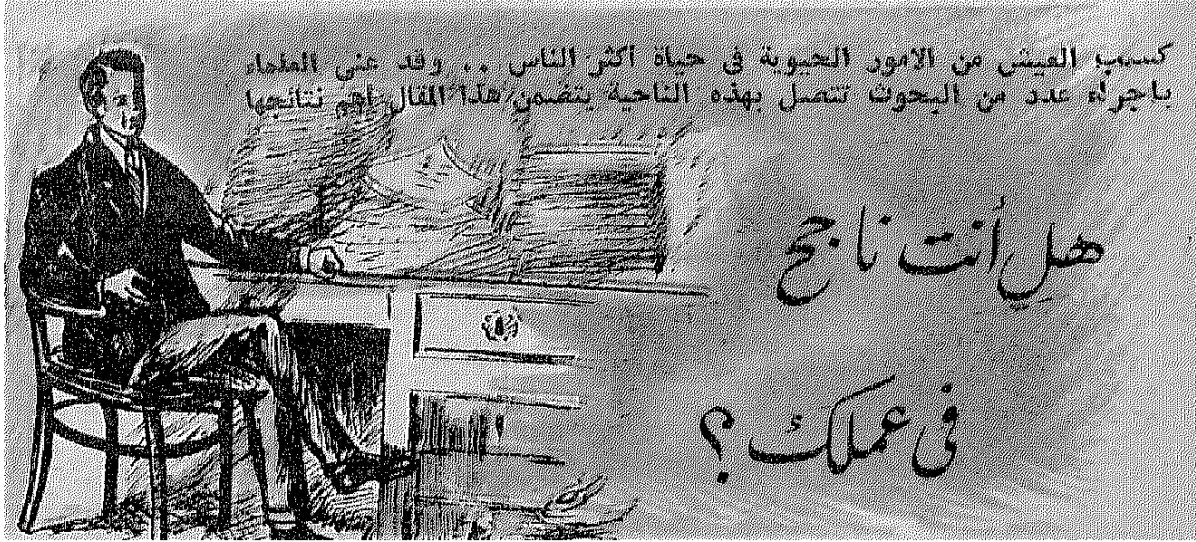 كسب العيش من الامور الحيوية فى حياة أكثر الناس .. وقد عنى العلماء
باجراء عدد من البحوث تتصل بهذه الناحية يتضمن هذا المقال أهم نتائجها
هل أنت ناجح
فى عملك ؟